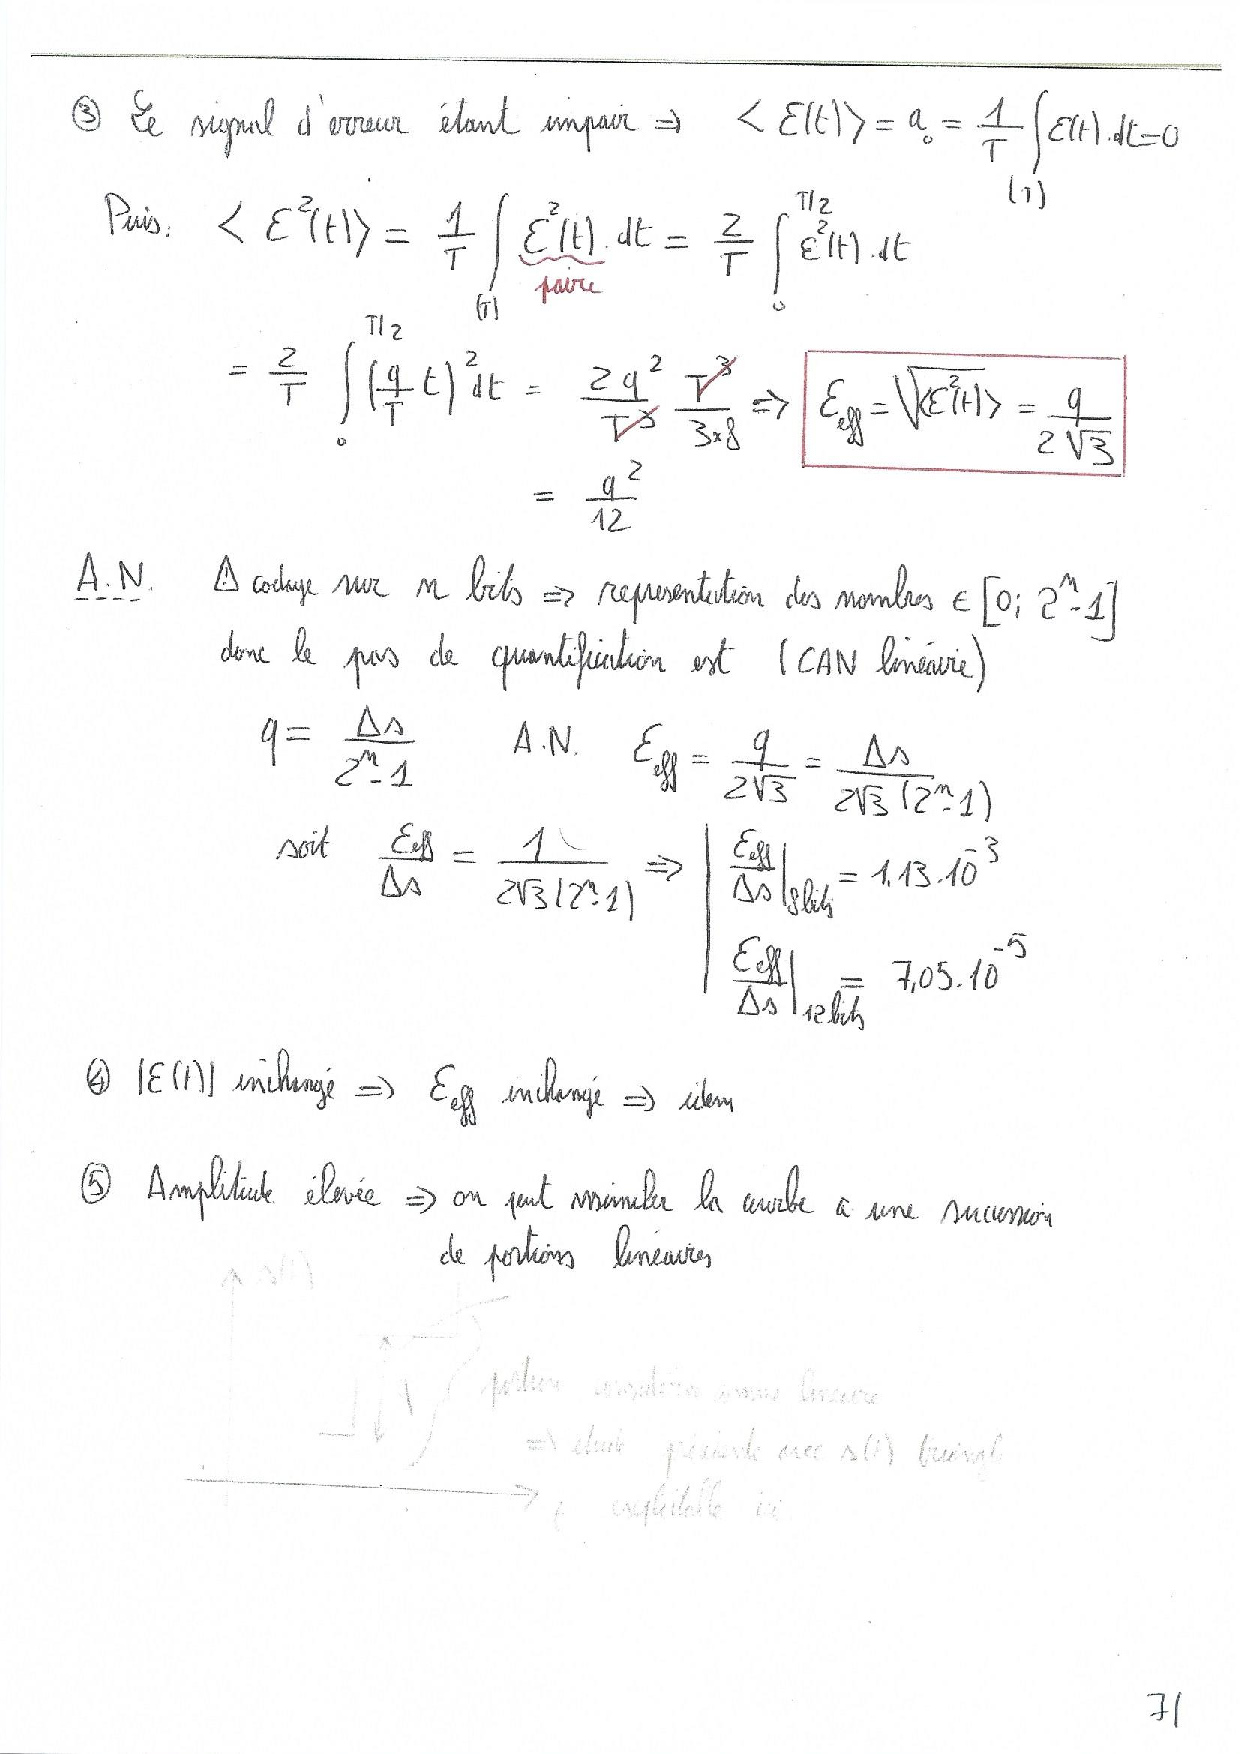 ③ Le signal d'erreur étant impair ⇒ < ε(t) > = a₀ = 1/T ∫(T) ε(t).dt = 0
Puis: < ε²(t) > = 1/T ∫(T) ε²(t).dt = 2/T ∫₀^{T/2} ε²(t).dt
paire
= 2/T ∫₀^{T/2} (q/T t)² dt = 2q²/T³ T³/(3×8) ⇒ ε_eff = √<ε²(t)> = q/(2√3)
= q²/12
A.N. ⚠ codage sur n bits ⇒ representation des nombres ∈ [0; 2ⁿ-1]
donc le pas de quantification est (CAN linéaire)
q = Δs/(2ⁿ-1) A.N. ε_eff = q/(2√3) = Δs/(2√3(2ⁿ-1))
soit ε_eff/Δs = 1/(2√3(2ⁿ-1)) ⇒ | ε_eff/Δs|_8bits = 1,13.10⁻³
| ε_eff/Δs|_12bits = 7,05.10⁻⁵
④ |ε(t)| inchangé ⇒ ε_eff inchangé ⇒ idem
⑤ Amplitude élevée ⇒ on peut assimiler la courbe a une succession
de portions linéaires
s(t)
portion considérée comme lineaire
⇒ étude précédente avec s(t) triangle
t exploitable ici
71